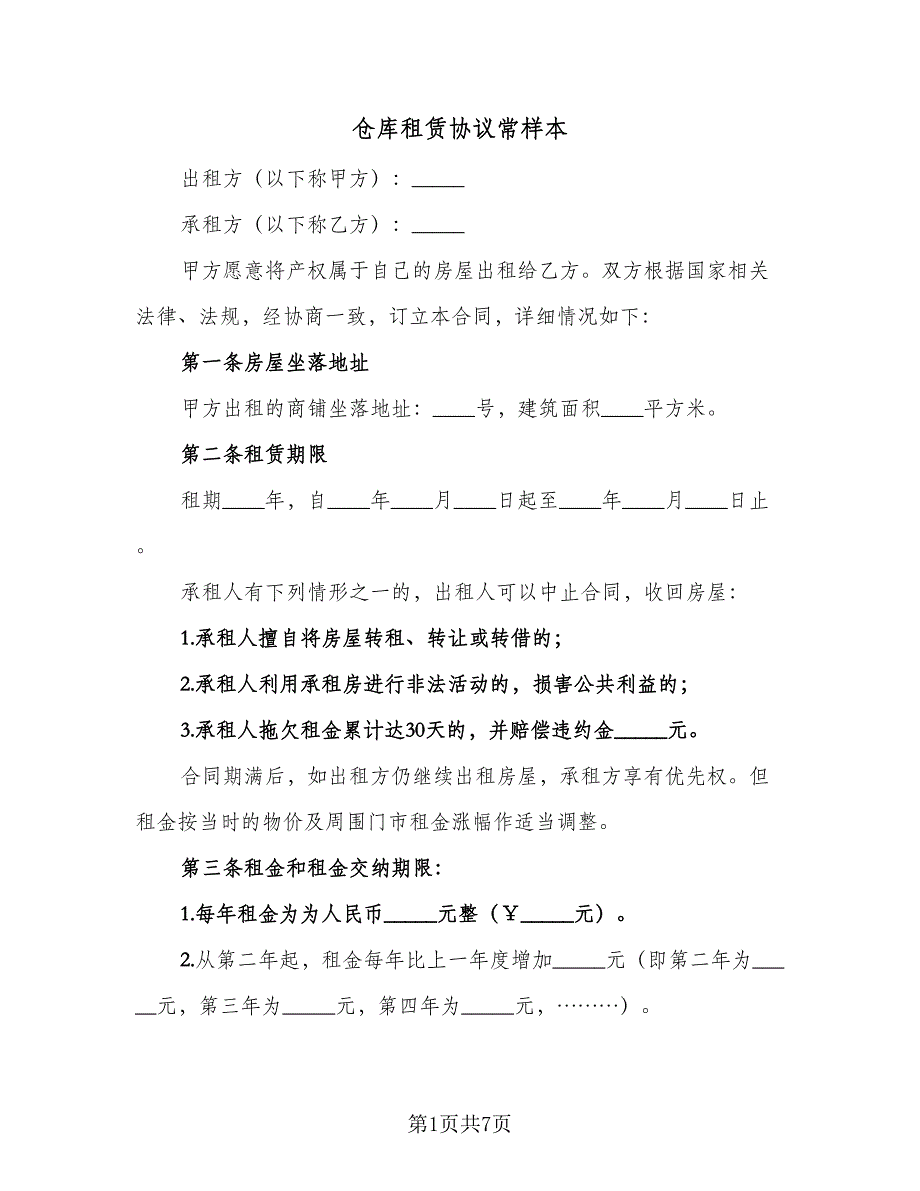 仓库租赁协议常样本
出租方（以下称甲方）：_____
承租方（以下称乙方）：_____
甲方愿意将产权属于自己的房屋出租给乙方。双方根据国家相关
法律、法规，经协商一致，订立本合同，详细情况如下：
第一条房屋坐落地址
甲方出租的商铺坐落地址：____号，建筑面积____平方米。
第二条租赁期限
租期____年，自____年____月____日起至____年____月____日止
。
承租人有下列情形之一的，出租人可以中止合同，收回房屋：
1.承租人擅自将房屋转租、转让或转借的；
2.承租人利用承租房进行非法活动的，损害公共利益的；
3.承租人拖欠租金累计达30天的，并赔偿违约金_____元。
合同期满后，如出租方仍继续出租房屋，承租方享有优先权。但
租金按当时的物价及周围门市租金涨幅作适当调整。
第三条租金和租金交纳期限：
1.每年租金为为人民币_____元整（￥_____元）。
2.从第二年起，租金每年比上一年度增加_____元（即第二年为___
__元，第三年为_____元，第四年为_____元，………）。
第1页共7页